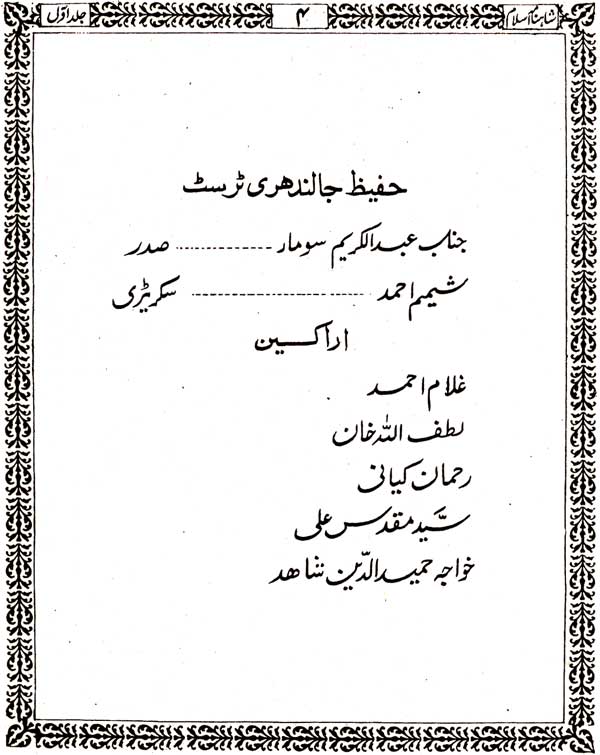 شاہنامہ اسلام ۴ جلد اوّل
حفیظ جالندھری ٹرسٹ
جناب عبدالکریم سومار ------------ صدر
شمیم احمد ------------------------ سکریٹری
اراکین
غلام احمد
لطف اللہ خان
رحمان کیانی
سیّد مقدس علی
خواجہ حمید الدّین شاھد